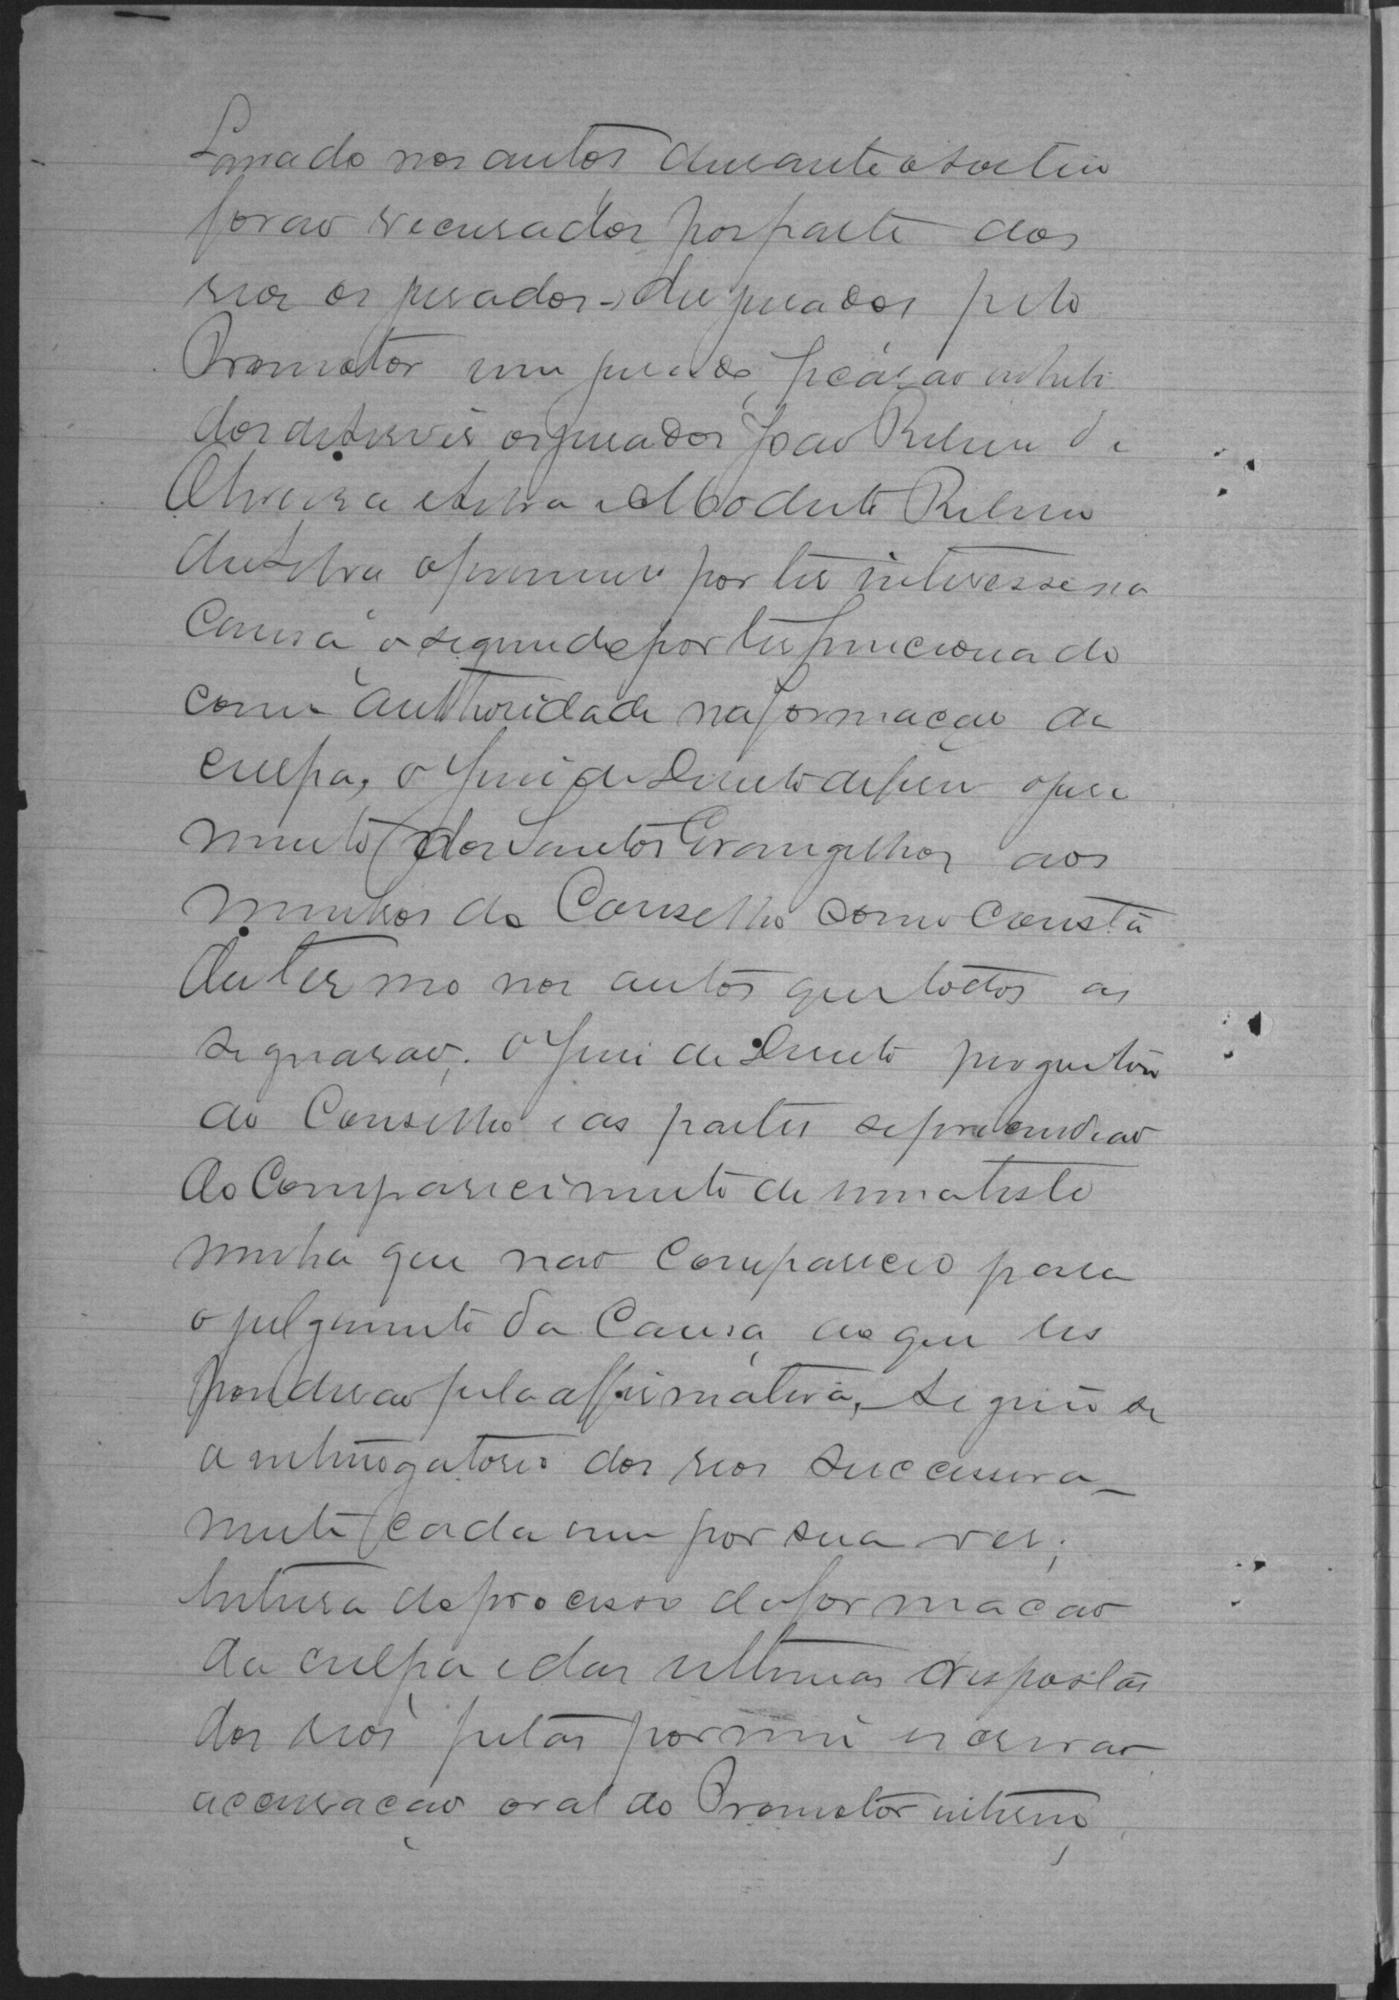 nado nos autos durante o sorteio
forão recusados por parte dos
reos os jurados, dez jurados pelo
Promotor um jurado, ficárão inhibi
dos de servir os jurados João Ribeiro de
Oliveira e Silva e Modesto Ribeiro
da Silva o primeiro por ter interesse na
Causa, o segundo por ter funccionado
como authoridade na formação da
culpa, o Juiz de Direito deferiu o jura
mento dos Santos Evangelhos aos
membros do Conselho como consta
do termo nos autos que todos as
signarão; O Juiz de Direito proguntou
ao Conselho e as partes se prescindião
do comparecimento de uma teste
munha que não compareceo para
o julgamento da Causa, ao que res
ponderão pela affirmativa, Seguio se
o interrogatorio dos reos successiva_
mente cada um por sua vez;
leitura do processo de formação
da culpa e das ultimas respostas
dos reos feitas por mim escrivão
accusação oral do Promotor interino,